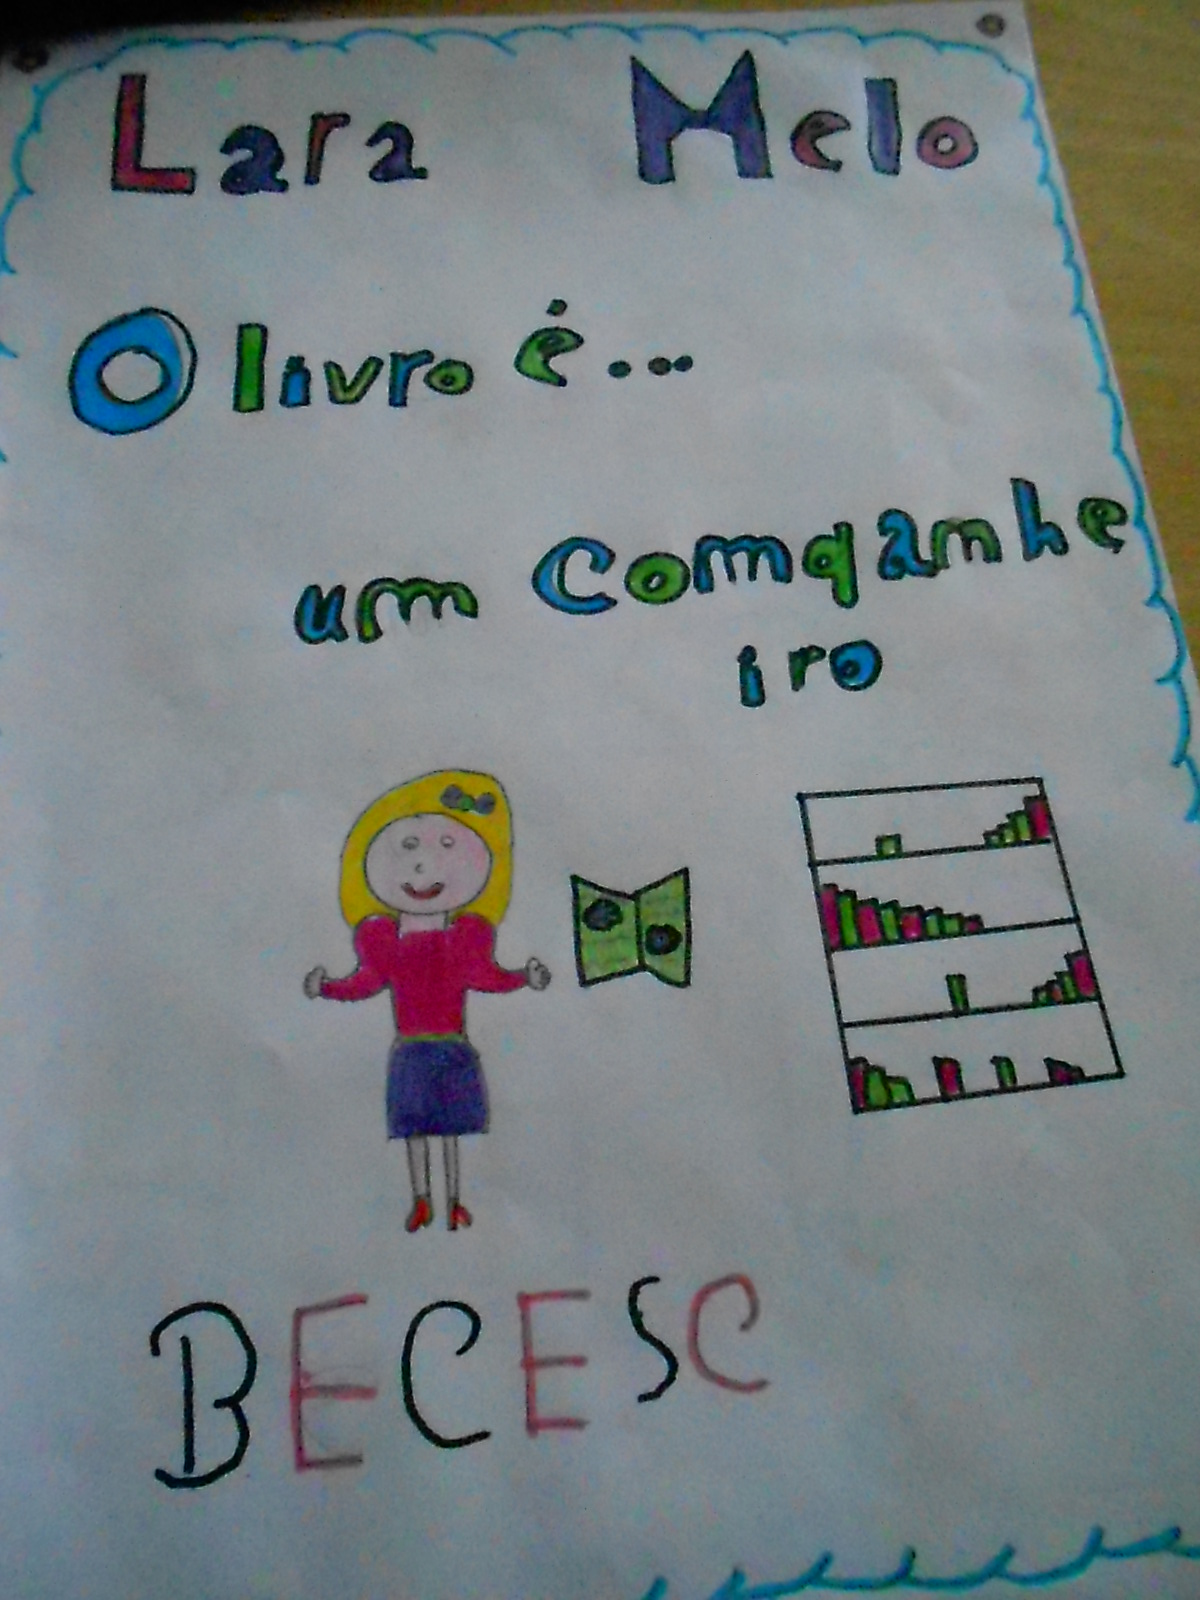 Lara Melo
O livro é...
um Comqanhe
iro
BECESC